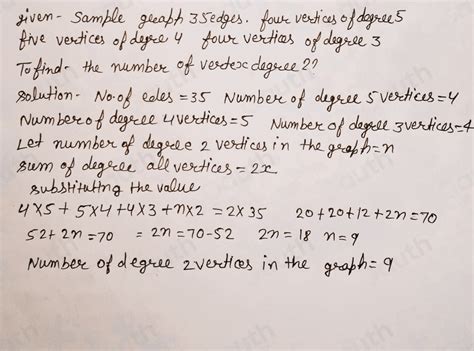 given- Sample geaph 35edges. four vertices of degree5
five vertices of degre 4 four vertices of degree 3
To find- the number of vertex degree 2?
Solution- No.of edes =35 Number of degree 5 vertices=4
Number of degree 4 vertices=5 Number of degree 3 vertices=4
Let number of degree 2 vertices in the graph=n
sum of degree all vertices = 2x
substituting the value
4x5+ 5x4+4x3+nx2 =2x35 20+20+12+2n=70
52+2n=70 = 2n=70-52 2n=18 n=9
Number of degree 2 vertices in the graph= 9